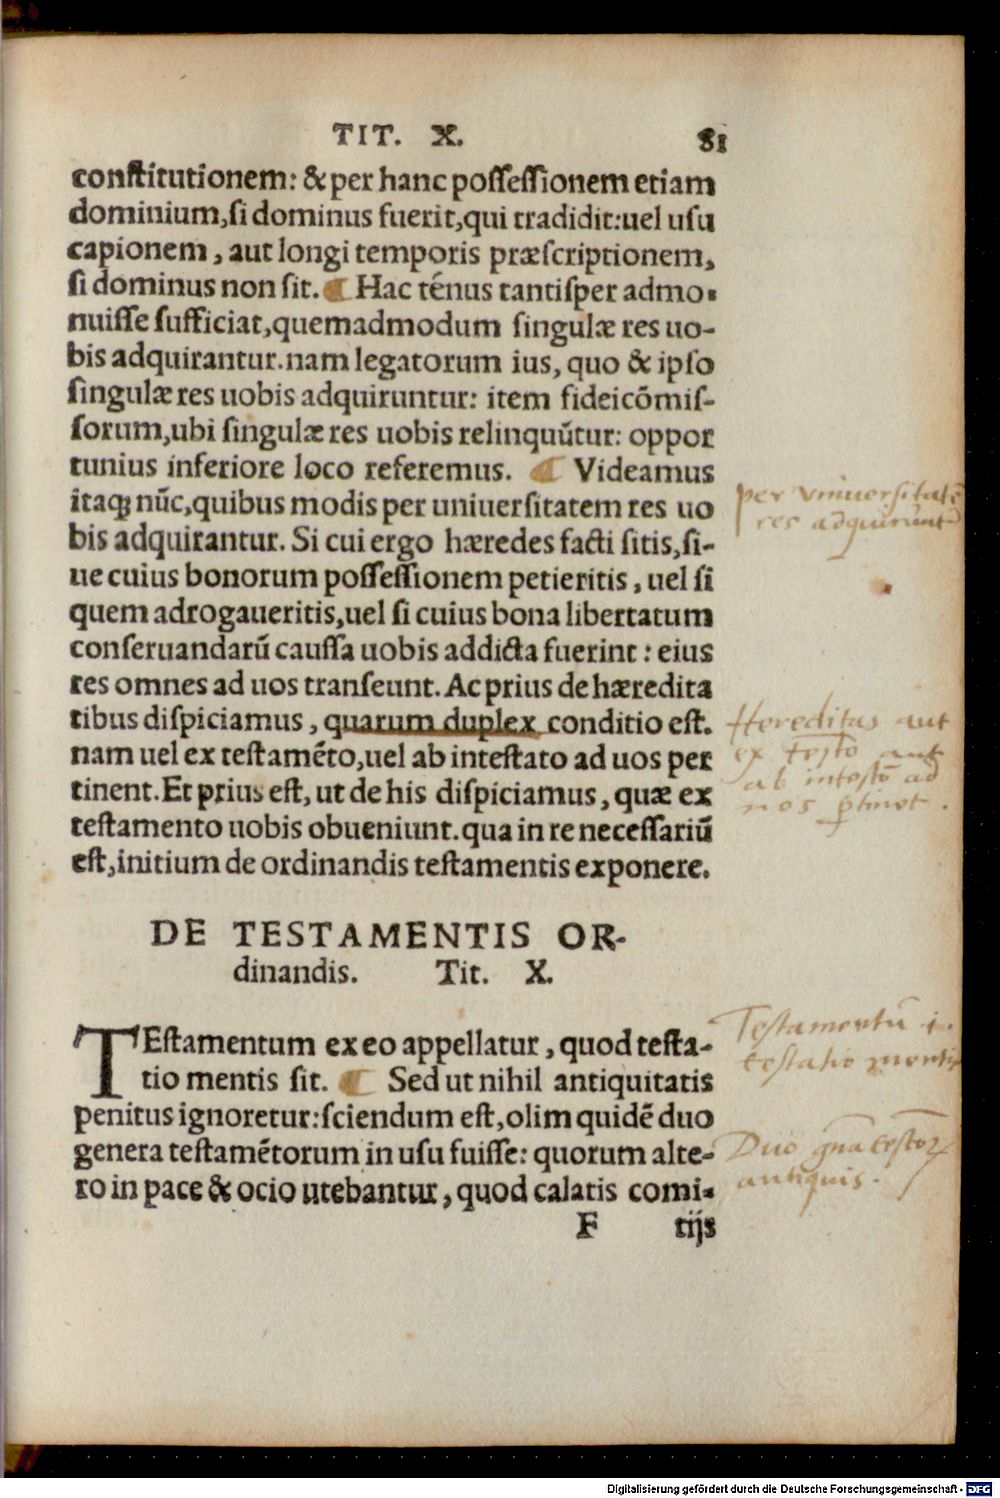 TIT. X. 81
constitutionem: & per hanc possessionem etiam
dominium, si dominus fuerit, qui tradidit: uel usu
capionem, aut longi temporis præscriptionem,
si dominus non sit. ¶ Hac ténus tantisper admo-
nuisse sufficiat, quemadmodum singulæ res uo-
bis adquirantur. nam legatorum ius, quo & ipso
singulæ res uobis adquiruntur: item fideicõmis-
sorum, ubi singulæ res uobis relinquũtur: oppor
tunius inferiore loco referemus. ¶ Videamus
itaq; nũc, quibus modis per uniuersitatem res uo
bis adquirantur. Si cui ergo hæredes facti sitis, si-
ue cuius bonorum possessionem petieritis, uel si
quem adrogaueritis, uel si cuius bona libertatum
conseruandarũ caussa uobis addicta fuerint: eius
res omnes ad uos transeunt. Ac prius de hæredita
tibus dispiciamus, quarum duplex conditio est.
nam uel ex testamẽto, uel ab intestato ad uos per
tinent. Et prius est, ut de his dispiciamus, quæ ex
testamento uobis obueniunt. qua in re necessariũ
est, initium de ordinandis testamentis exponere.
DE TESTAMENTIS OR-
dinandis. Tit. X.
TEstamentum ex eo appellatur, quod testa-
tio mentis sit. ¶ Sed ut nihil antiquitatis
penitus ignoretur: sciendum est, olim quidẽ duo
genera testamẽtorum in usu fuisse: quorum alte-
ro in pace & ocio utebantur, quod calatis comi-
F tijs
per vniuersitatẽ
res adquirunt
Hereditas aut
ex testo aut
ab intesto ad
nos ptinet.
Testamentũ i.
testatio mentis
Duo gna testoꝝ
antiquis.
Digitalisierung gefördert durch die Deutsche Forschungsgemeinschaft - DFG